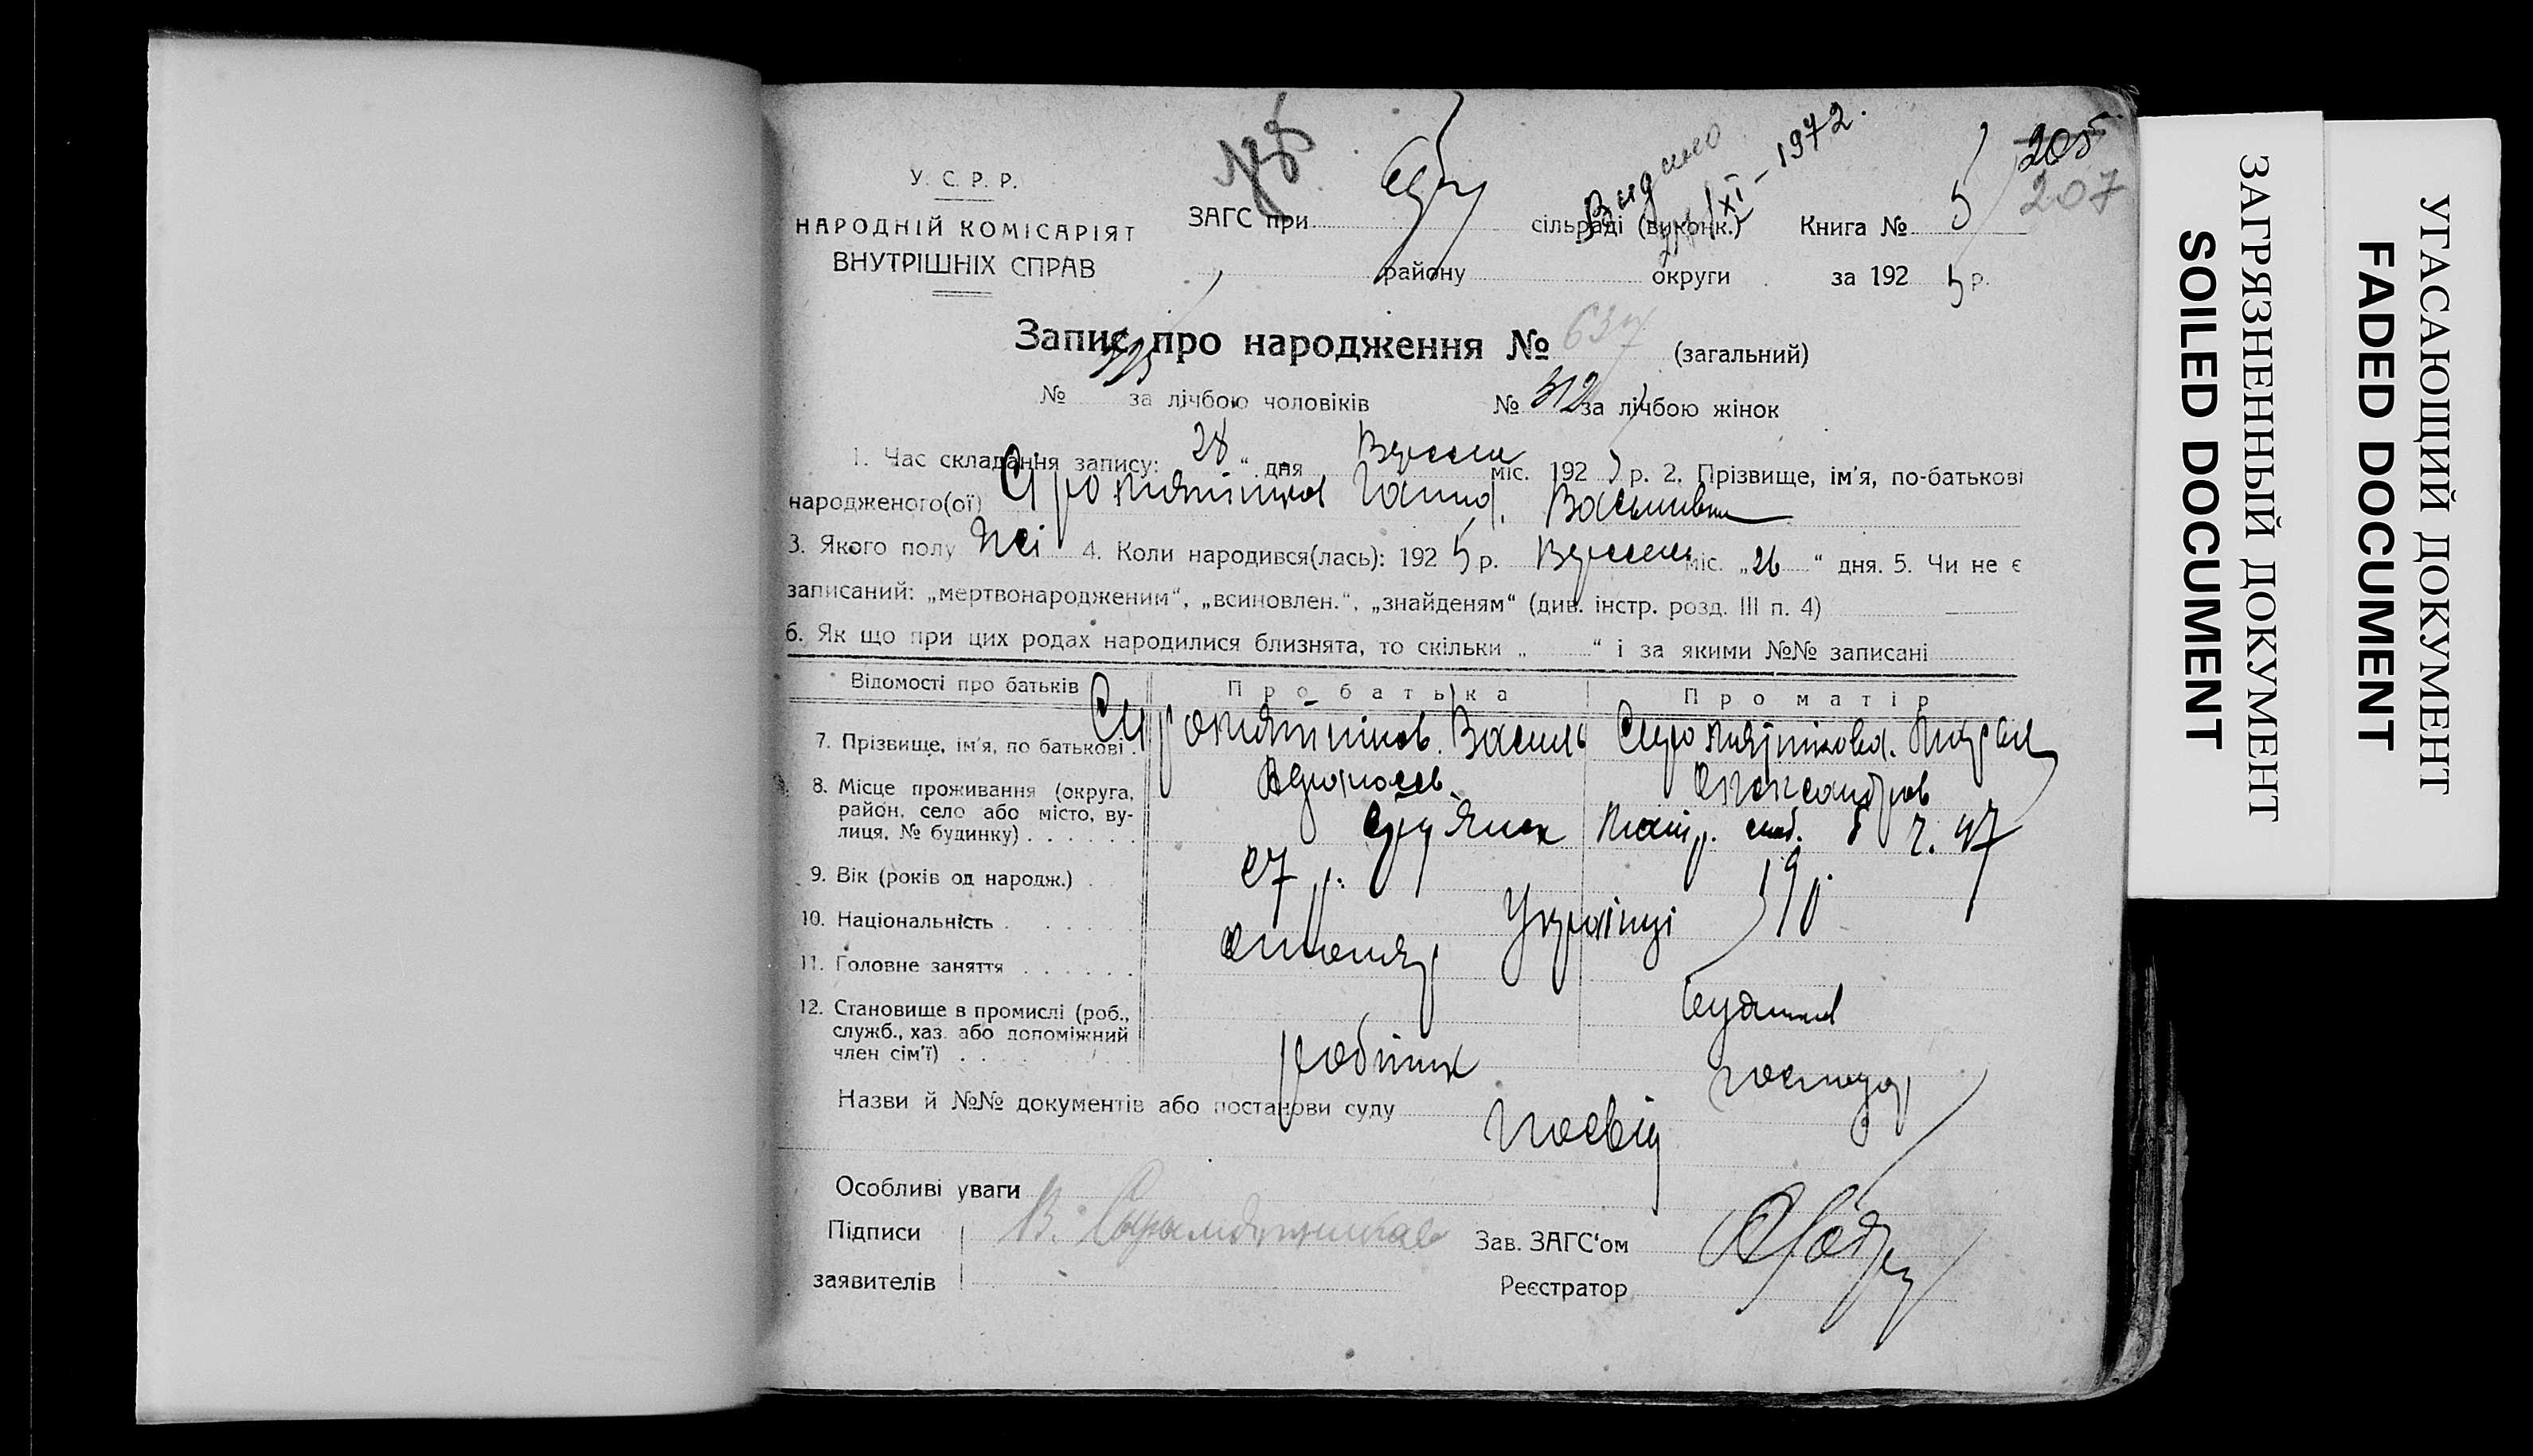 205
207
У. С. Р. Р.
НАРОДНІЙ КОМІСАРІЯТ
ВНУТРІШНІХ СПРАВ
ЗАГС при сільраді (виконк.) Книга № 5
району округи за 1925 р.
Видано
XI - 1972.
Запис про народження № 637 (загальний)
№ за лічбою чоловіків № 312 за лічбою жінок
1. Час складання запису: 28 " дня Вересн міс. 1925 р. 2. Прізвище, ім'я, по-батькові
народженого(ої) Сиромятнікова Ганна Васильвна
3. Якого полу жі 4. Коли народився(лась): 1925 р. Вересня міс. „26 " дня. 5. Чи не є
записаний: „мертвонародженим", „всиновлен.", „знайденям" (див. інстр. розд. III п. 4)
6. Як що при цих родах народилися близнята, то скільки „ " і за якими №№ записані
Відомості про батьків Про батька Про матір
7. Прізвище, ім'я, по батькові Сиромятніков Василь Сиромятнікова
Олександров
8. Місце проживання (округа,
район, село або місто, ву-
лиця, № будинку) 47
9. Вік (років од народж.) 27 р. 19 р.
10. Національність Українці
11. Головне заняття
12. Становище в промислі (роб.,
служб., хаз. або допоміжний
член сім'ї) робітник господар
Назви й №№ документів або постанови суду посвід
Особливі уваги
Підписи В. Сыромятников Зав. ЗАГС'ом
заявителів Реєстратор
ЗАГРЯЗНЕННЫЙ ДОКУМЕНТ
SOILED DOCUMENT
УГАСАЮЩИЙ ДОКУМЕНТ
FADED DOCUMENT